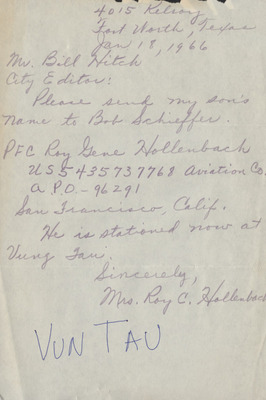 4015 Kelsey
Fort Worth, Texas
Jan 18, 1966
Mr. Bill Hitch
City Editor:
Please send my son's
name to Bob Schieffer.
PFC Roy Gene Hollenbach
US 54357377 68 Aviation Co.
A P.O. - 96291
San Francisco, Calif.
He is stationed now at
Vung Tau.
Sincerely,
Mrs. Roy C. Hollenbach
VUN TAU